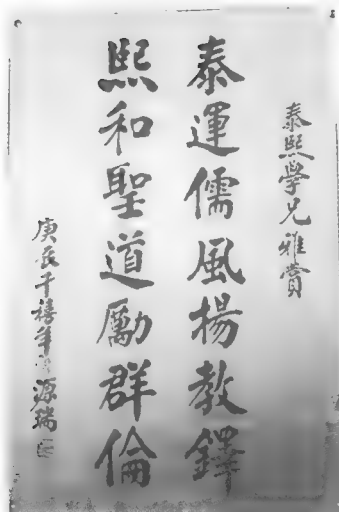 泰熙學兄雅賞
泰運儒風揚教鐸
熙和聖道勵群倫
庚辰千禧年 源瑞